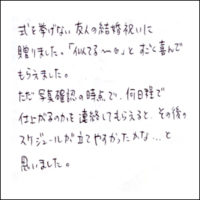 式を挙げない友人の結婚祝いに
贈りました。「似てる〜☺」とすごく喜んで
もらえました。
ただ写真確認の時点で、何日程で
仕上がるのかを連絡してもらえると、その後の
スケジュールが立てやすかったかな…と
思いました。